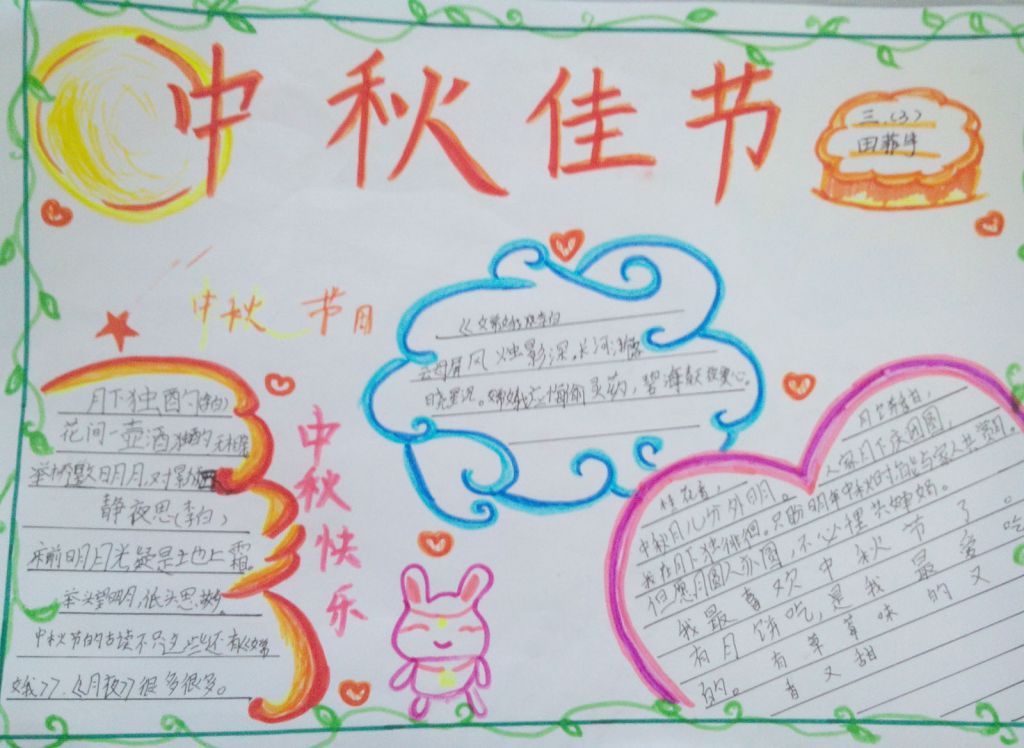 中秋佳节
三.(3)
田菲
中秋 节月
月下独酌(李白)
花间一壶酒 独酌无相
举杯邀明月,对影
静夜思(李白)
床前明月光,疑是土也上霜。
举头望明月,低头思
中秋节的古读不只这些还有《嫦
娥》》.《《月夜》》很多很多。
中秋快乐
云母屏风烛影深,长河渐
晓星沉。嫦娥应悔偷灵药,碧海
月饼香甜,
人在月下庆团圆,
桂花香,
中秋月儿分外明。
我在月下独徘徊。只盼明年中秋时,能与家人共赏月。
但愿月圆人亦圆,不必埋共婵娟。
我最喜欢中秋节了。
有月饼吃,是我最爱吃
的。有草莓味的又
香又甜